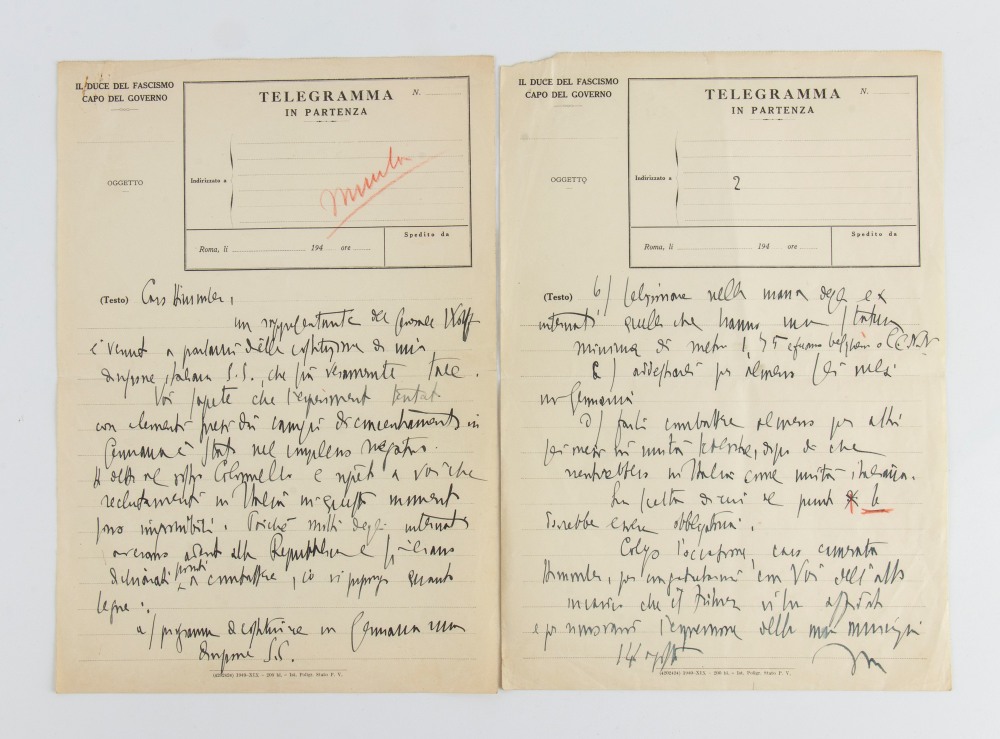 IL DUCE DEL FASCISMO
CAPO DEL GOVERNO
OGGETTO
TELEGRAMMA N.
IN PARTENZA
Indirizzato a
Roma, li 194 ore
Spedito da
(Testo) Caro Himmler,
un rappresentante del Generale Wolff
è venuto a parlarmi della costituzione di una
divisione italiana S.S., che sia veramente tale.
Voi sapete che l'esperimento tentato
con elementi presi dai campi di concentramento in
Germania è stato nel complesso negativo.
Ho detto al vostro Colonnello e ripeto a voi che
reclutamenti in Italia in questo momento
sono impossibili. Poiché molti degli internati
avevano aderito alla Repubblica e si erano
dichiarati pronti a combattere, io vi propongo quanto
segue:
a) programma di costituire in Germania una
divisione S.S.
(4202424) 1940-XIX - 200 bl. - Ist. Poligr. Stato P. V.
IL DUCE DEL FASCISMO
CAPO DEL GOVERNO
OGGETTO
TELEGRAMMA N.
IN PARTENZA
Indirizzato a
2
Roma, li 194 ore
Spedito da
(Testo) b) selezionare nella massa degli ex
internati quelli che hanno una statura
minima di metri 1,75 o CC.NN.
c) addestrarli per almeno sei mesi
in Germania
d) farli combattere almeno per altri
sei mesi in unità tedesche, dopo di che
rientrebbero in Italia come unità italiana.
La scelta di cui al punto b
dovrebbe essere obbligatoria.
Colgo l'occasione, caro camerata
Himmler, per congratularmi con Voi dell'alto
incarico che il Führer vi ha affidato
e per rinnovarvi l'espressione della mia amicizia
14 agosto
(4202424) 1940-XIX - 200 bl. - Ist. Poligr. Stato P. V.